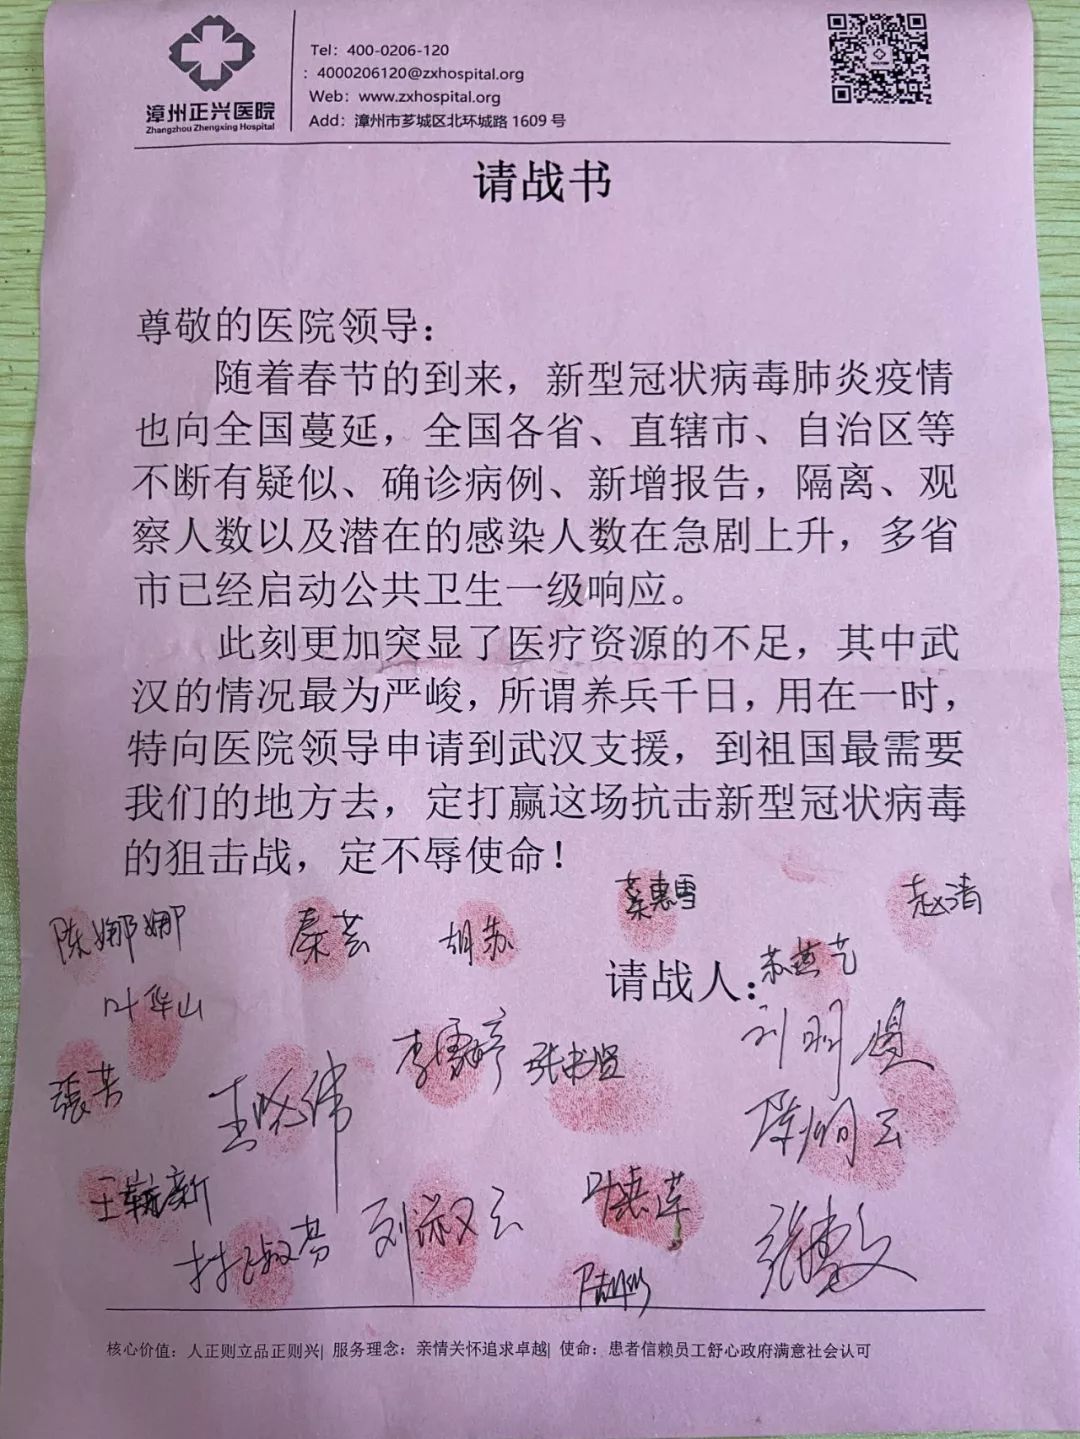 漳州正兴医院
Zhangzhou Zhengxing Hospital
Tel：400-0206-120
：4000206120@zxhospital.org
Web：www.zxhospital.org
Add：漳州市芗城区北环城路 1609 号
请战书
尊敬的医院领导：
随着春节的到来，新型冠状病毒肺炎疫情
也向全国蔓延，全国各省、直辖市、自治区等
不断有疑似、确诊病例、新增报告，隔离、观
察人数以及潜在的感染人数在急剧上升，多省
市已经启动公共卫生一级响应。
此刻更加突显了医疗资源的不足，其中武
汉的情况最为严峻，所谓养兵千日，用在一时，
特向医院领导申请到武汉支援，到祖国最需要
我们的地方去，定打赢这场抗击新型冠状病毒
的狙击战，定不辱使命！
陈娜娜
秦芸
胡苏
蔡惠雪
赵清
请战人：
苏燕艺
叶华山
张芳
王晓伟
李雾婷
张书贤
林淑芬
刘淑云
叶惠莲
核心价值：人正则立品正则兴| 服务理念：亲情关怀追求卓越| 使命：患者信赖员工舒心政府满意社会认可